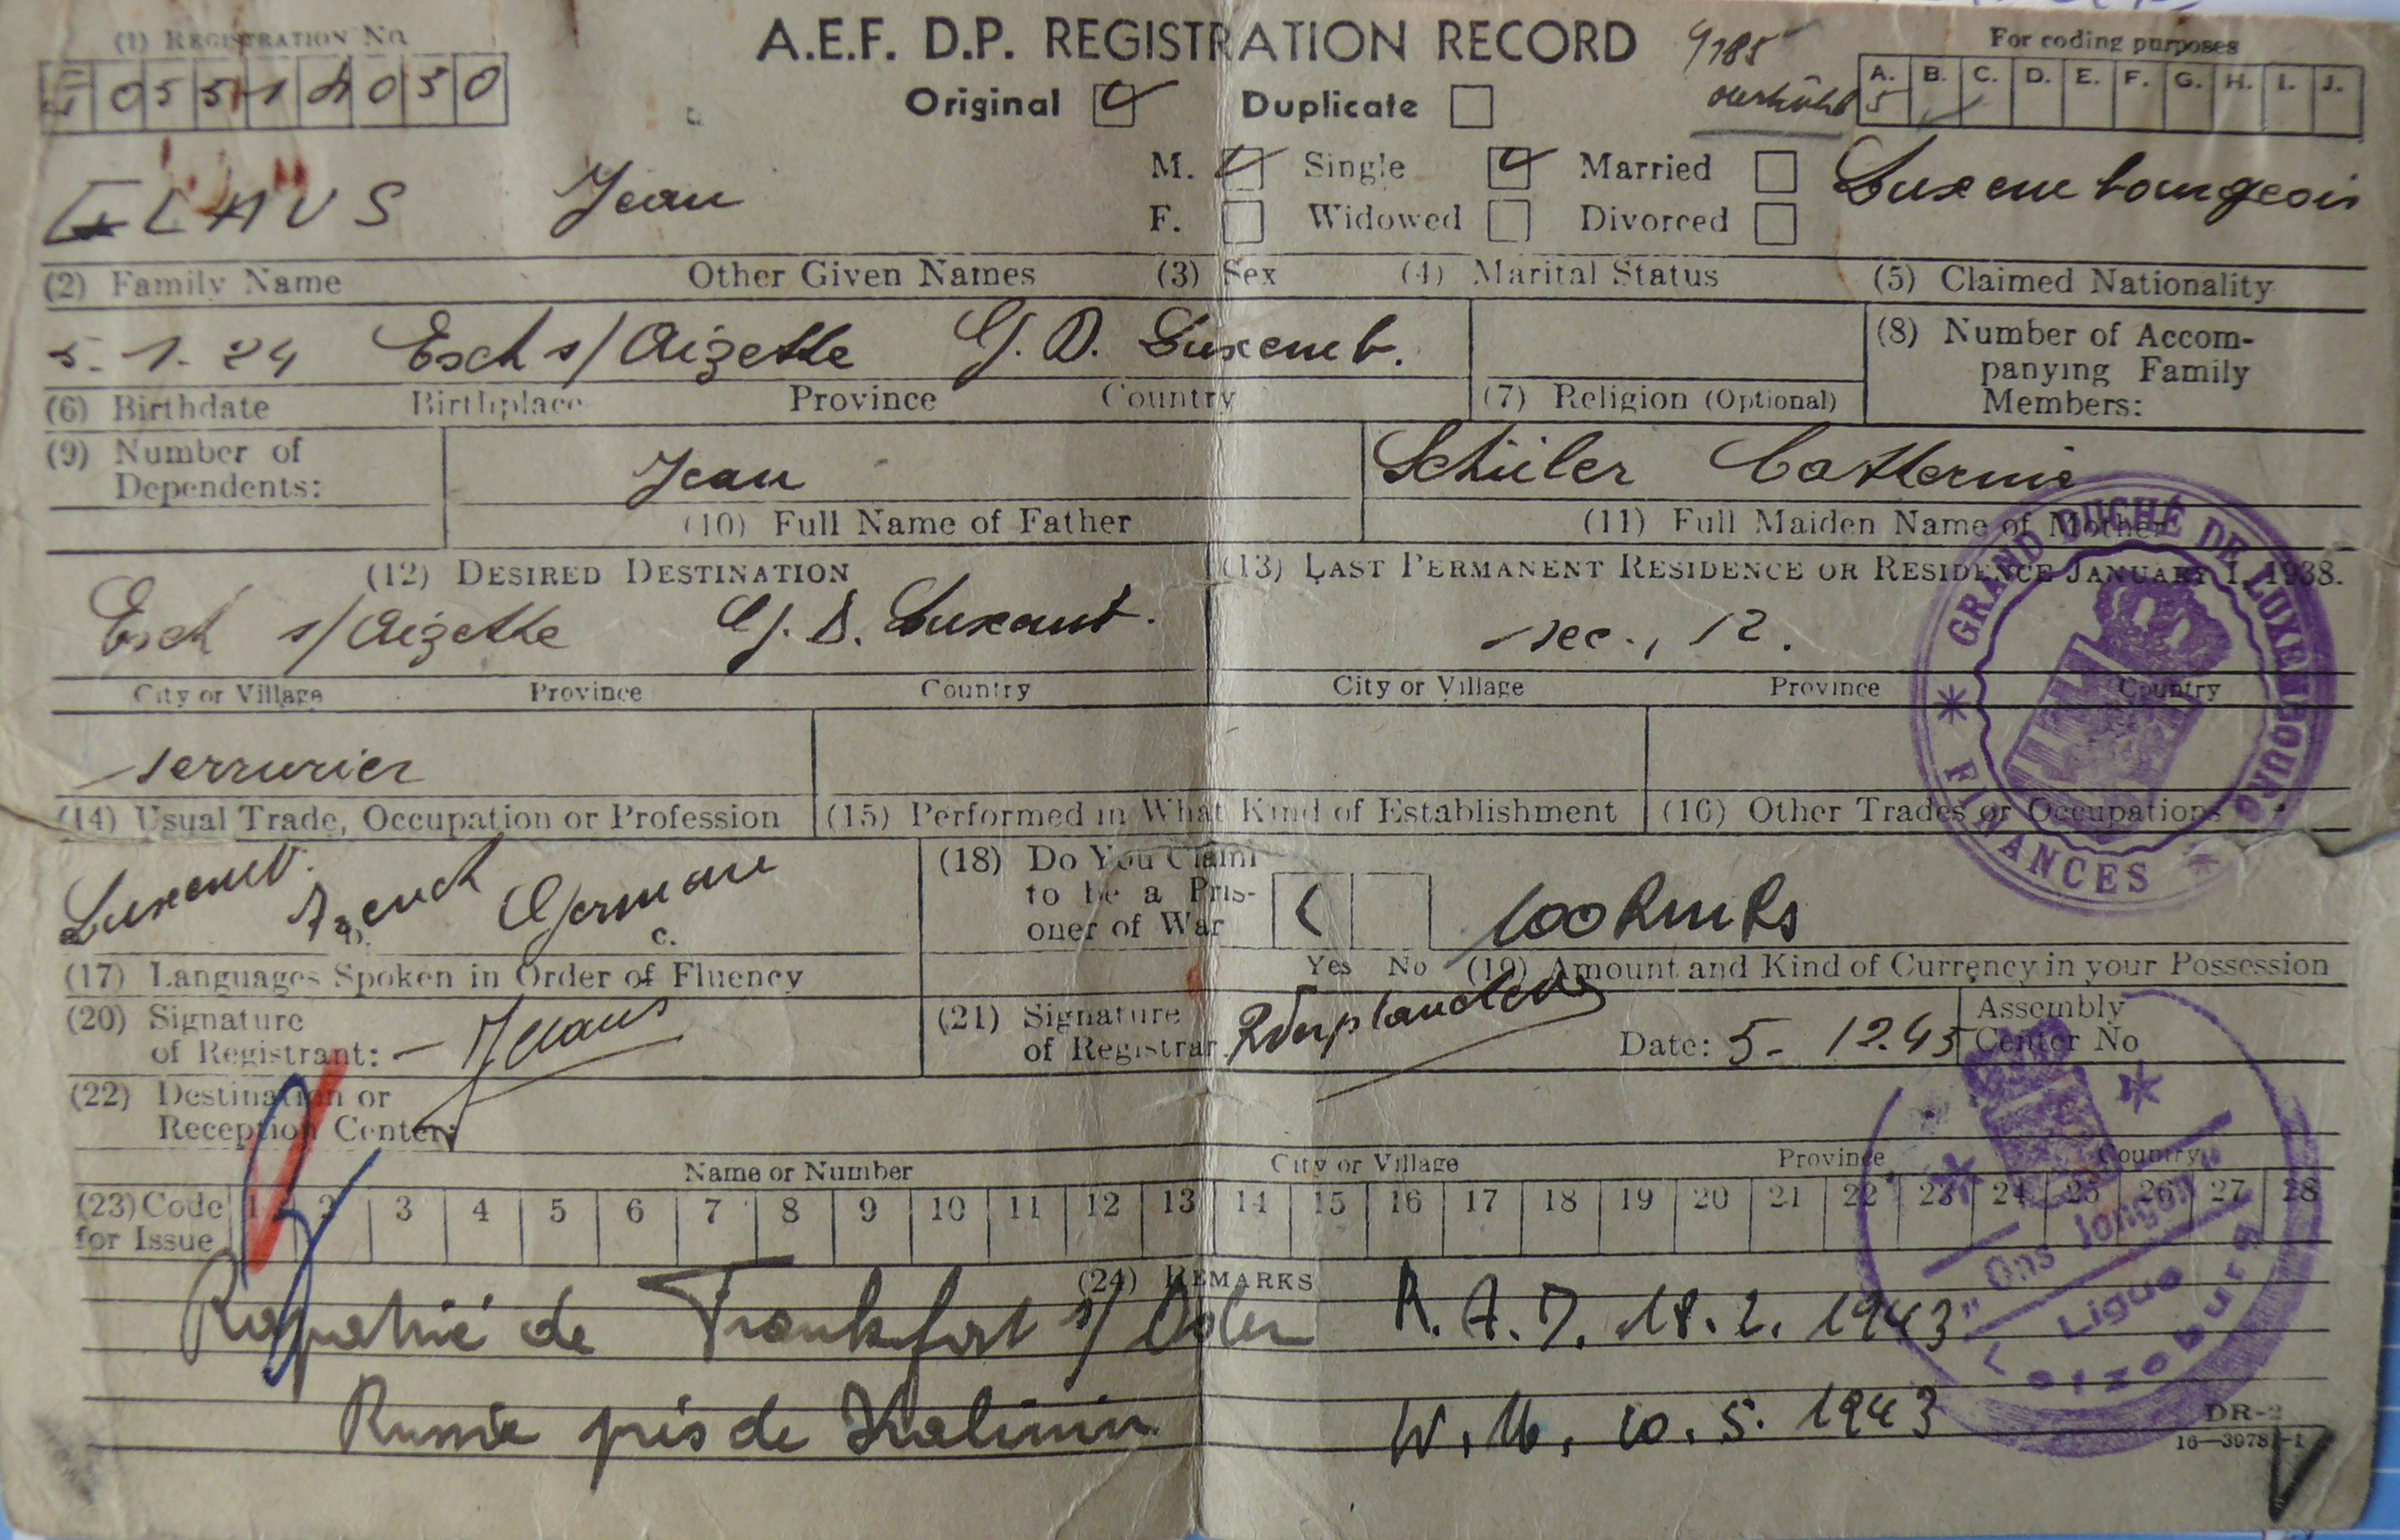 A.E.F. D.P. REGISTRATION RECORD
(1) REGISTRATION No.
For coding purposes
Original Duplicate
A. B. C. D. E. F. G. H. I. J.
5
M. Single Married
Jean Luxembourgeois
F. Widowed Divorced
(2) Family Name Other Given Names (3) Sex (4) Marital Status (5) Claimed Nationality
5. 1. 24 Esch s/Alzette G. D. Luxemb.
(8) Number of Accom-
panying Family
Members:
(6) Birthdate Birthplace Province Country (7) Religion (Optional)
(9) Number of
Dependents:
Jean Schüler Catherine
(10) Full Name of Father (11) Full Maiden Name of Mother
(12) DESIRED DESTINATION (13) LAST PERMANENT RESIDENCE OR RESIDENCE JANUARY 1, 1938.
Esch s/Alzette G. D. Luxemb. sec., 12.
City or Village Province Country City or Village Province Country
GRAND DUCHÉ DE LUXEMBOURG
FINANCES
serrurier
(14) Usual Trade, Occupation or Profession (15) Performed in What Kind of Establishment (16) Other Trades or Occupations
Luxemb. French German
a. b. c.
(18) Do You Claim
to be a Pris-
oner of War
100 RMKs
(17) Languages Spoken in Order of Fluency Yes No (19) Amount and Kind of Currency in your Possession
(20) Signature
of Registrant:
(21) Signature
of Registrar
Date: 5. 12.45 Assembly
Center No
(22) Destination or
Reception Center:
Name or Number City or Village Province Country
(23) Code
for Issue
1 2 3 4 5 6 7 8 9 10 11 12 13 14 15 16 17 18 19 20 21 22 23 24 25 26 27 28
(24) REMARKS
Rapatrié de Frankfort s/ Oder R. A. D. 18. 2. 1943
Russie près de Kalinin W. M. 10. 5. 1943
"Ons Jongen"
Ligue
Letzeburg
DR-2
16—39781-1